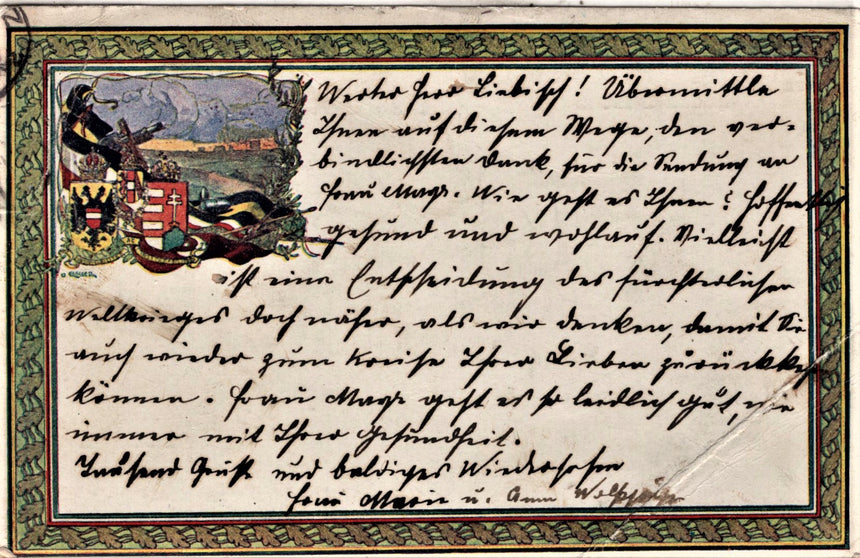 Werter Herr Liebisch! Übermittle
Ihnen auf diesem Wege, den ver-
bindlichsten Dank, für die Sendung an
Frau Mayr. Wie geht es Ihnen? Hoffentlich
gesund und wohlauf. Vielleicht
ist eine Entscheidung des fürchterlichen
Weltkrieges doch näher, als wir denken, damit Sie
auch wieder zum Kreise Ihrer Lieben zurückkehren
können. Frau Mayr geht es so leidlich gut, wie
immer mit Ihrer Gesundheit.
Tausend Grüße und baldiges Wiedersehen
Frau Marie u.